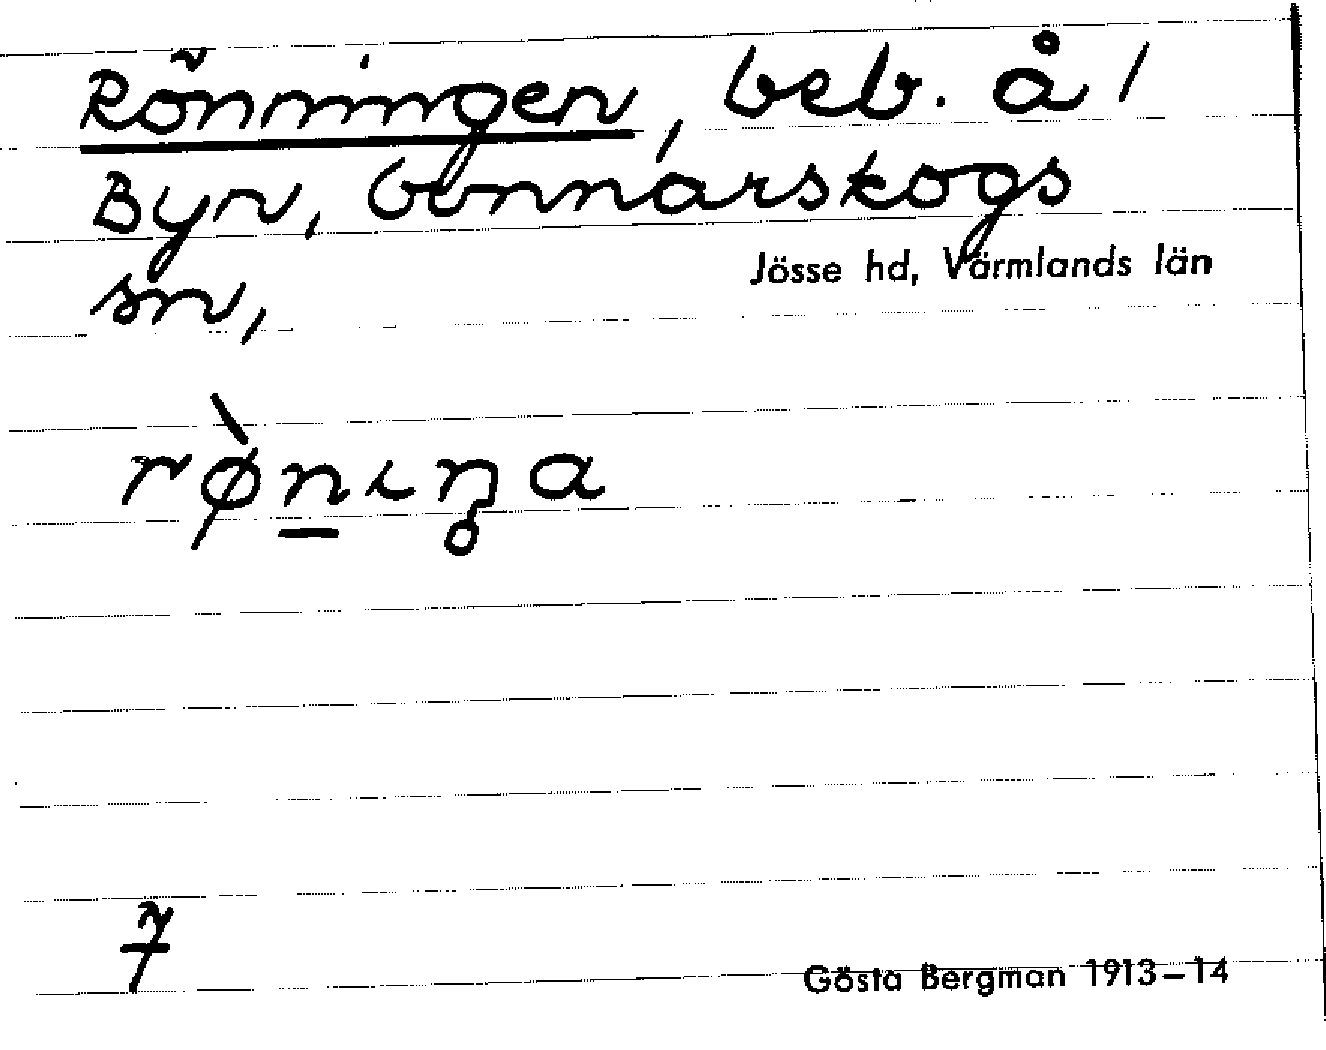 Rönningen, beb. å /
Byn, Gunnarskogs
Jösse hd, Värmlands län
sn,
rø̀n̲ıŋa
7
Gösta Bergman 1913–14